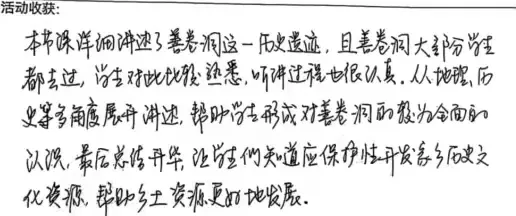 活动收获:
本节课详细讲述了善卷洞这一历史遗迹,且善卷洞大部分学生
都去过,学生对此比较熟悉,听讲过程也很认真.从地理、历
史等多角度展开讲述,帮助学生形成对善卷洞的较为全面的
认识,最后总结升华,让学生们知道应保护性开发家乡历史文
化资源,帮助乡土资源更好地发展.